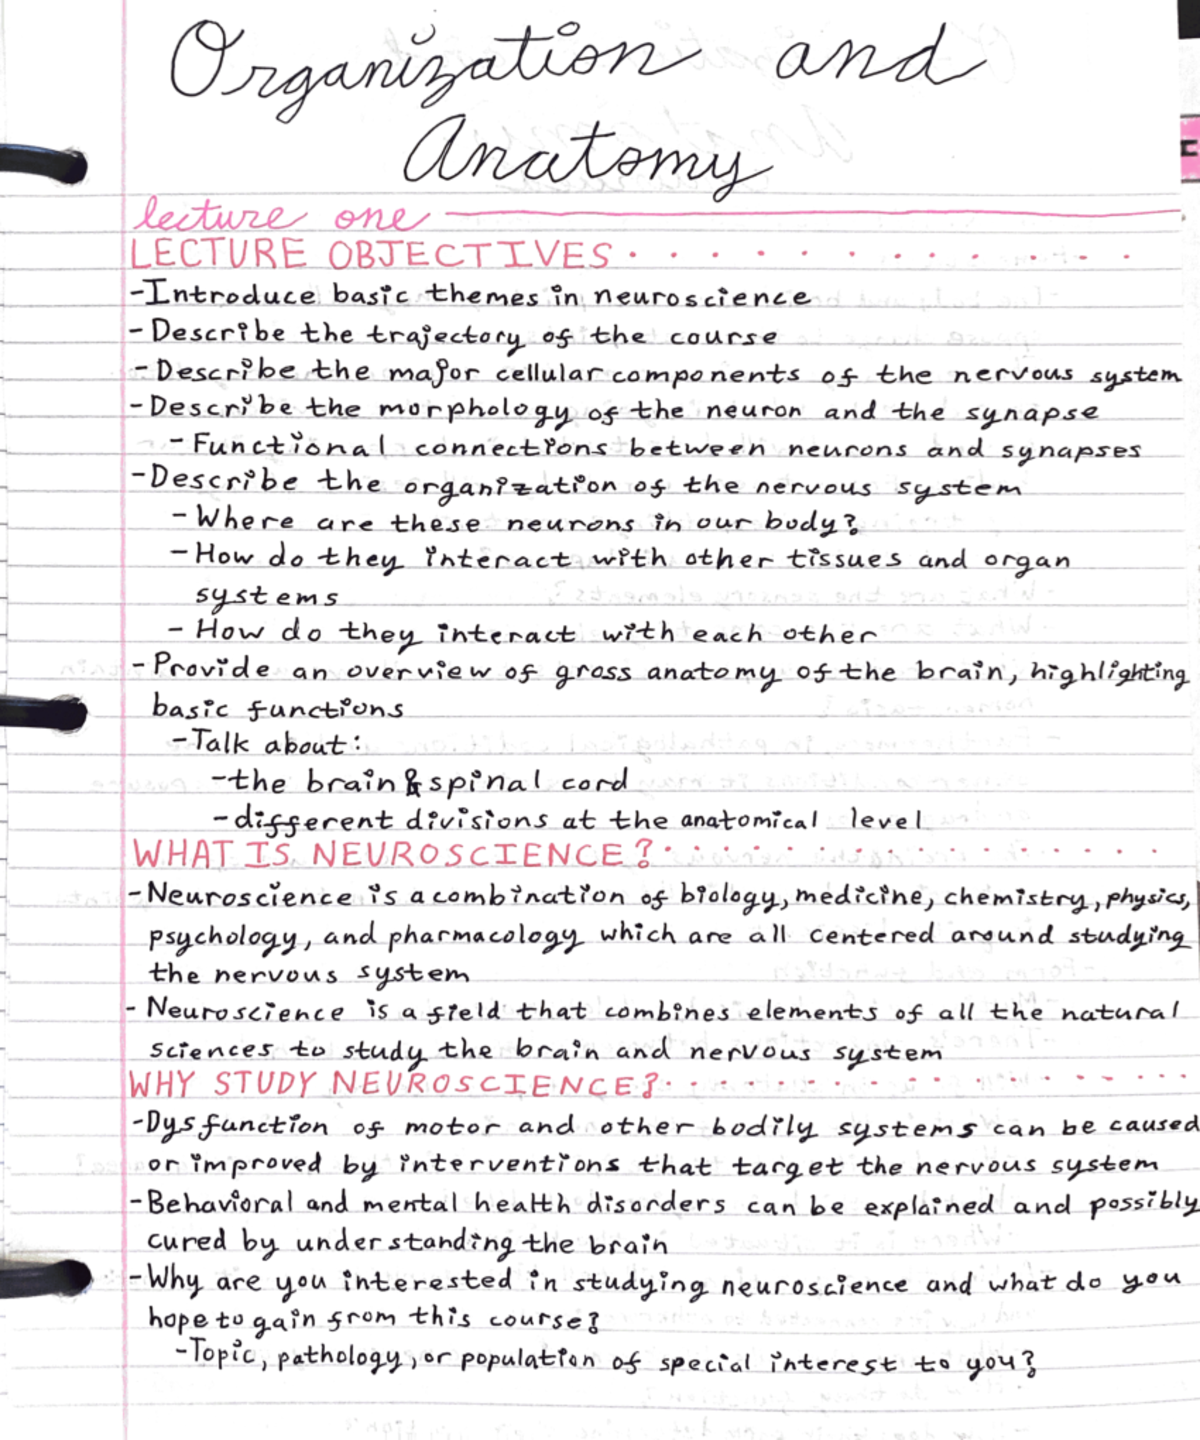 Organization and
Anatomy
lecture one
LECTURE OBJECTIVES
-Introduce basic themes in neuroscience
-Describe the trajectory of the course
-Describe the major cellular components of the nervous system
-Describe the morphology of the neuron and the synapse
-Functional connections between neurons and synapses
-Describe the organization of the nervous system
-Where are these neurons in our body?
-How do they interact with other tissues and organ
systems
-How do they interact with each other
-Provide an overview of gross anatomy of the brain, highlighting
basic functions
-Talk about:
-the brain & spinal cord
-different divisions at the anatomical level
WHAT IS NEUROSCIENCE?
-Neuroscience is a combination of biology, medicine, chemistry, physics,
psychology, and pharmacology which are all centered around studying
the nervous system
-Neuroscience is a field that combines elements of all the natural
sciences to study the brain and nervous system
WHY STUDY NEUROSCIENCE?
-Dysfunction of motor and other bodily systems can be caused
or improved by interventions that target the nervous system
-Behavioral and mental health disorders can be explained and possibly
cured by understanding the brain
-Why are you interested in studying neuroscience and what do you
hope to gain from this course?
-Topic, pathology, or population of special interest to you?